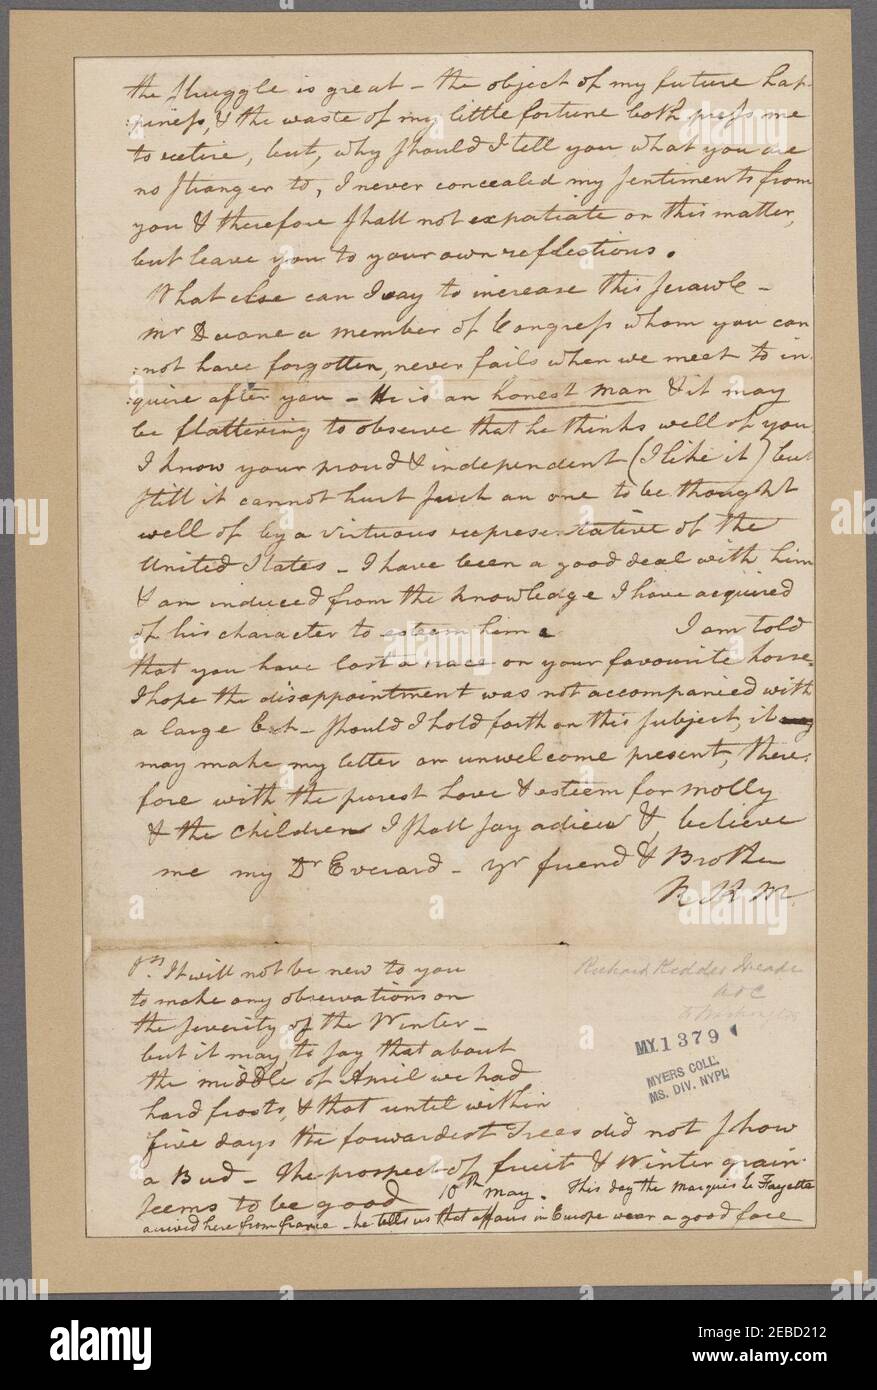 the struggle is great - the object of my future hap-
:piness, & the waste of my little fortune both press me
to retire, but, why should I tell you what you are
no stranger to, I never concealed my sentiments from
you & therefore shall not expatiate on this matter,
but leave you to your own reflections.
What else can I say to increase this scrawl -
Mr Duane a member of Congress whom you can
:not have forgotten, never fails when we meet to in
:quire after you - He is an honest man & it may
be flattering to observe that he thinks well of you
I know your proud & independent (I like it) but
still it cannot hurt such an one to be thought
well of by a virtuous representative of the
United States - I have been a good deal with him
& am induced from the knowledge I have acquired
of his character to esteem him I am told
that you have lost a race on your favourite horse.
I hope the disappointment was not accompanied with
a large bet - should I hold forth on this subject, it
may make my letter an unwelcome present, there:
fore with the purest love & esteem for Molly
& the children I shall say adieu &, believe
me my Dr Everard - yr friend & Brother
R K M.
Ps. It will not be new to you
to make any observations on
the severity of the Winter -
but it may, to say that about
the middle of April we had
hard frosts, & that until within
five days the forwardest Trees did not show
a Bud - the prospect of fruit & Winter grain
seems to be good 10th May. This day the Marquis le Fayette
arrived here from france - he tells us that affairs in Europe wear a good face
Richard Kidder Meade
ADC
to Washington
MY.1379
MYERS COLL.
MS. DIV. NYPL
alamy
Image ID: 2EBD212
www.alamy.com